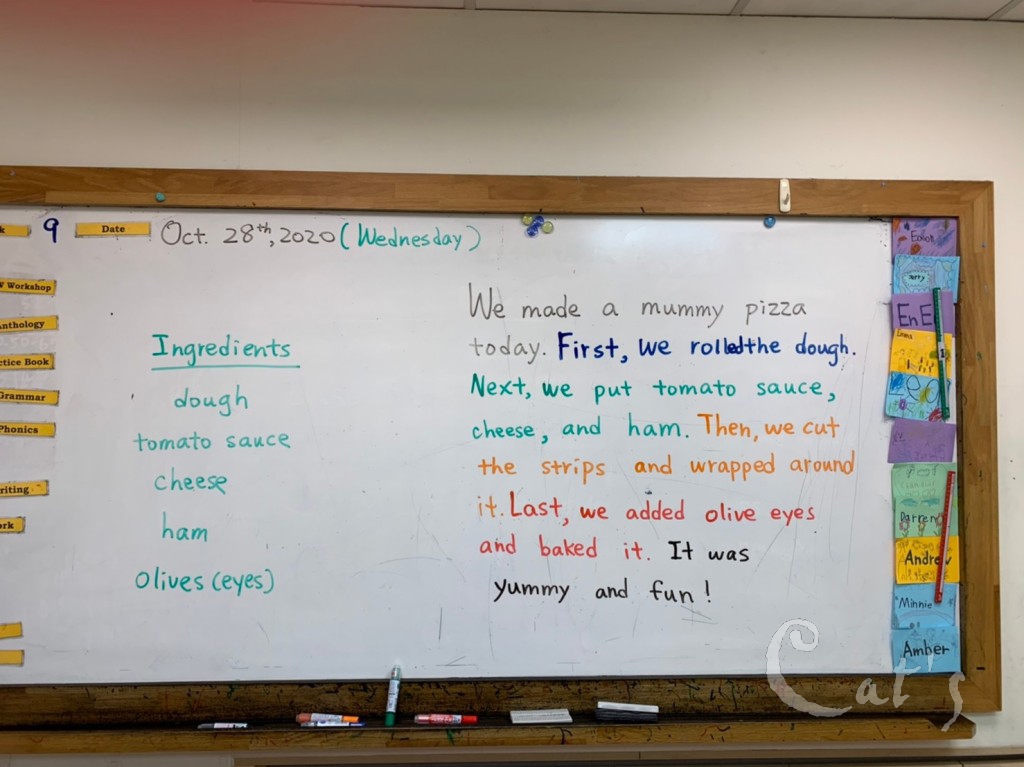 9 Date Oct. 28th, 2020 (Wednesday)
Workshop
Anthology
Practice Book
Grammar
Phonics
Ingredients
dough
tomato sauce
cheese
ham
Olives (eyes)
We made a mummy pizza
today. First, we rolled the dough.
Next, we put tomato sauce,
cheese, and ham. Then, we cut
the strips and wrapped around
it. Last, we added olive eyes
and baked it. It was
yummy and fun!
Emma
Leo
Darren
Andrew
Minnie
Amber
Cat's